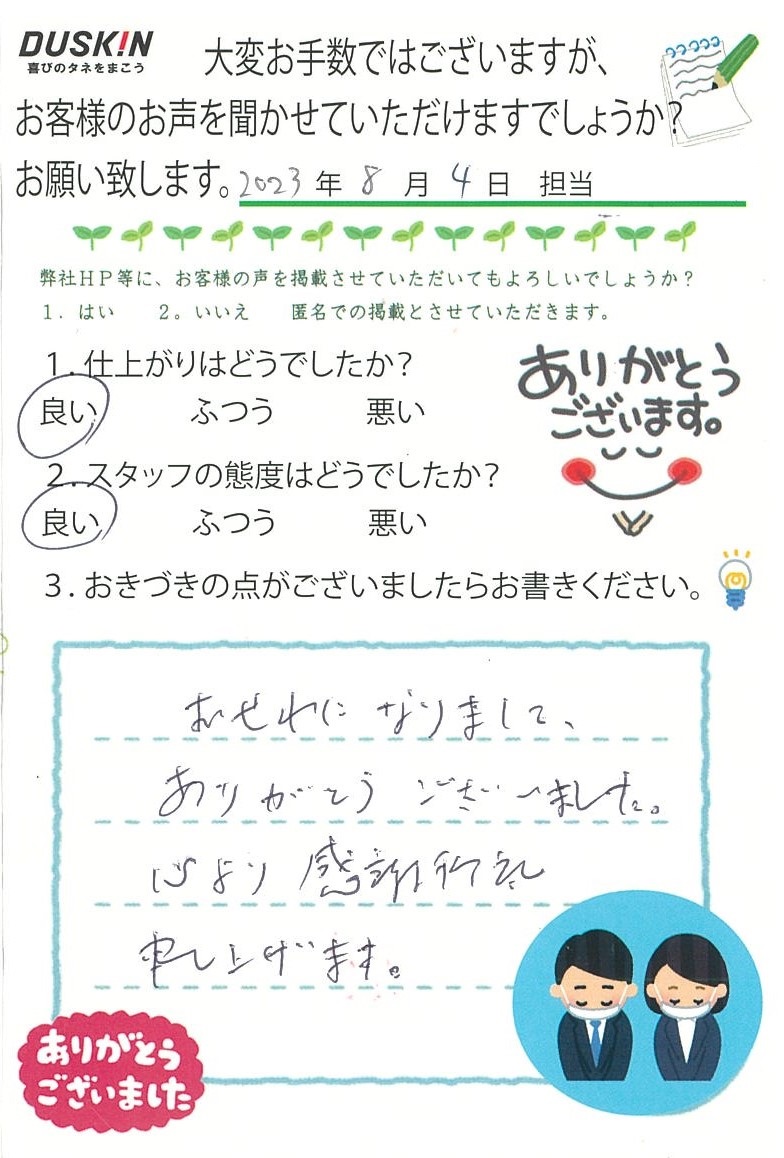 DUSK!N
喜びのタネをまこう
大変お手数ではございますが、
お客様のお声を聞かせていただけますでしょうか?
お願い致します。2023年 8 月 4 日 担当
弊社HP等に、お客様の声を掲載させていただいてもよろしいでしょうか?
1. はい 2。いいえ 匿名での掲載とさせていただきます。
1.仕上がりはどうでしたか?
良い ふつう 悪い
ありがとう
ございます。
2.スタッフの態度はどうでしたか?
良い ふつう 悪い
3.おきづきの点がございましたらお書きください。
おせわになりまして、
ありがとうございました。
心より感謝御礼
申し上げます。
ありがとう
ございました